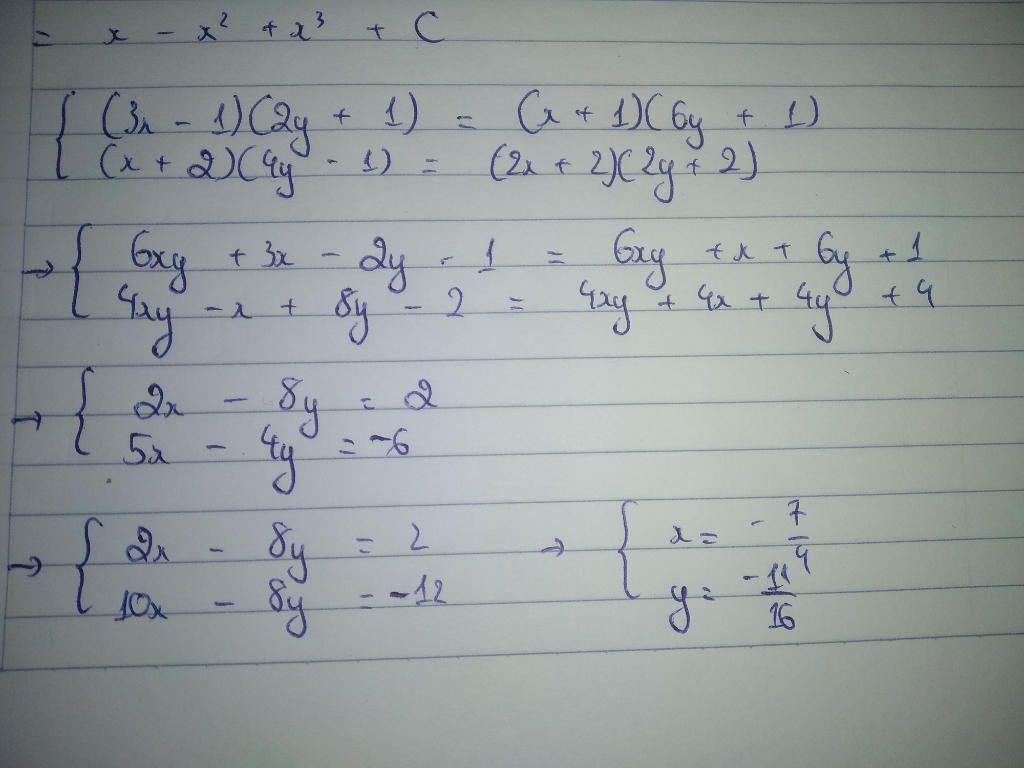 = x - x² + x³ + C
{ (3x - 1)(2y + 1) = (x + 1)(6y + 1)
(x + 2)(4y - 1) = (2x + 2)(2y + 2)
→ { 6xy + 3x - 2y - 1 = 6xy + x + 6y + 1
4xy - x + 8y - 2 = 4xy + 4x + 4y + 4
→ { 2x - 8y = 2
5x - 4y = -6
→ { 2x - 8y = 2 → { x = - 7/4
10x - 8y = -12 y = -11/16